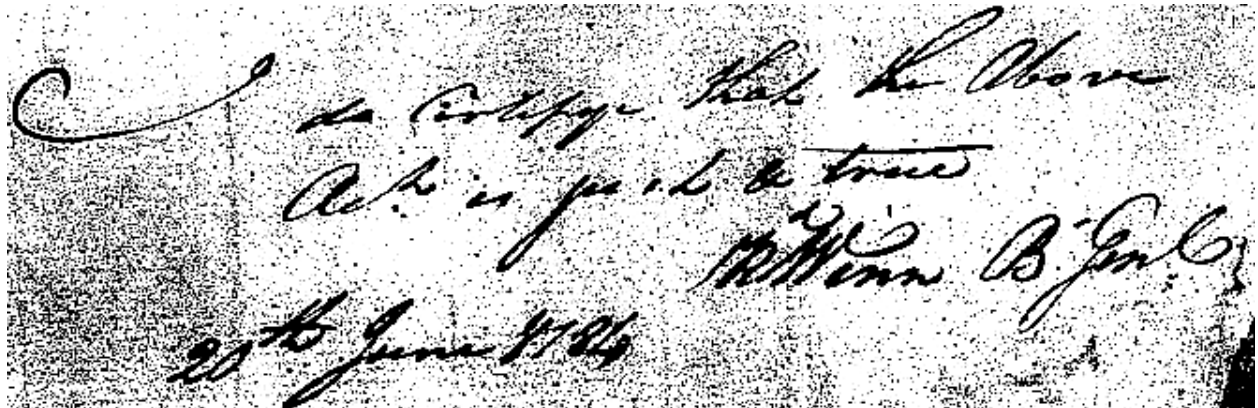 I do Certifye that the Above
Acct. is just & true
Rd Winn B. Genl
20th June 1784